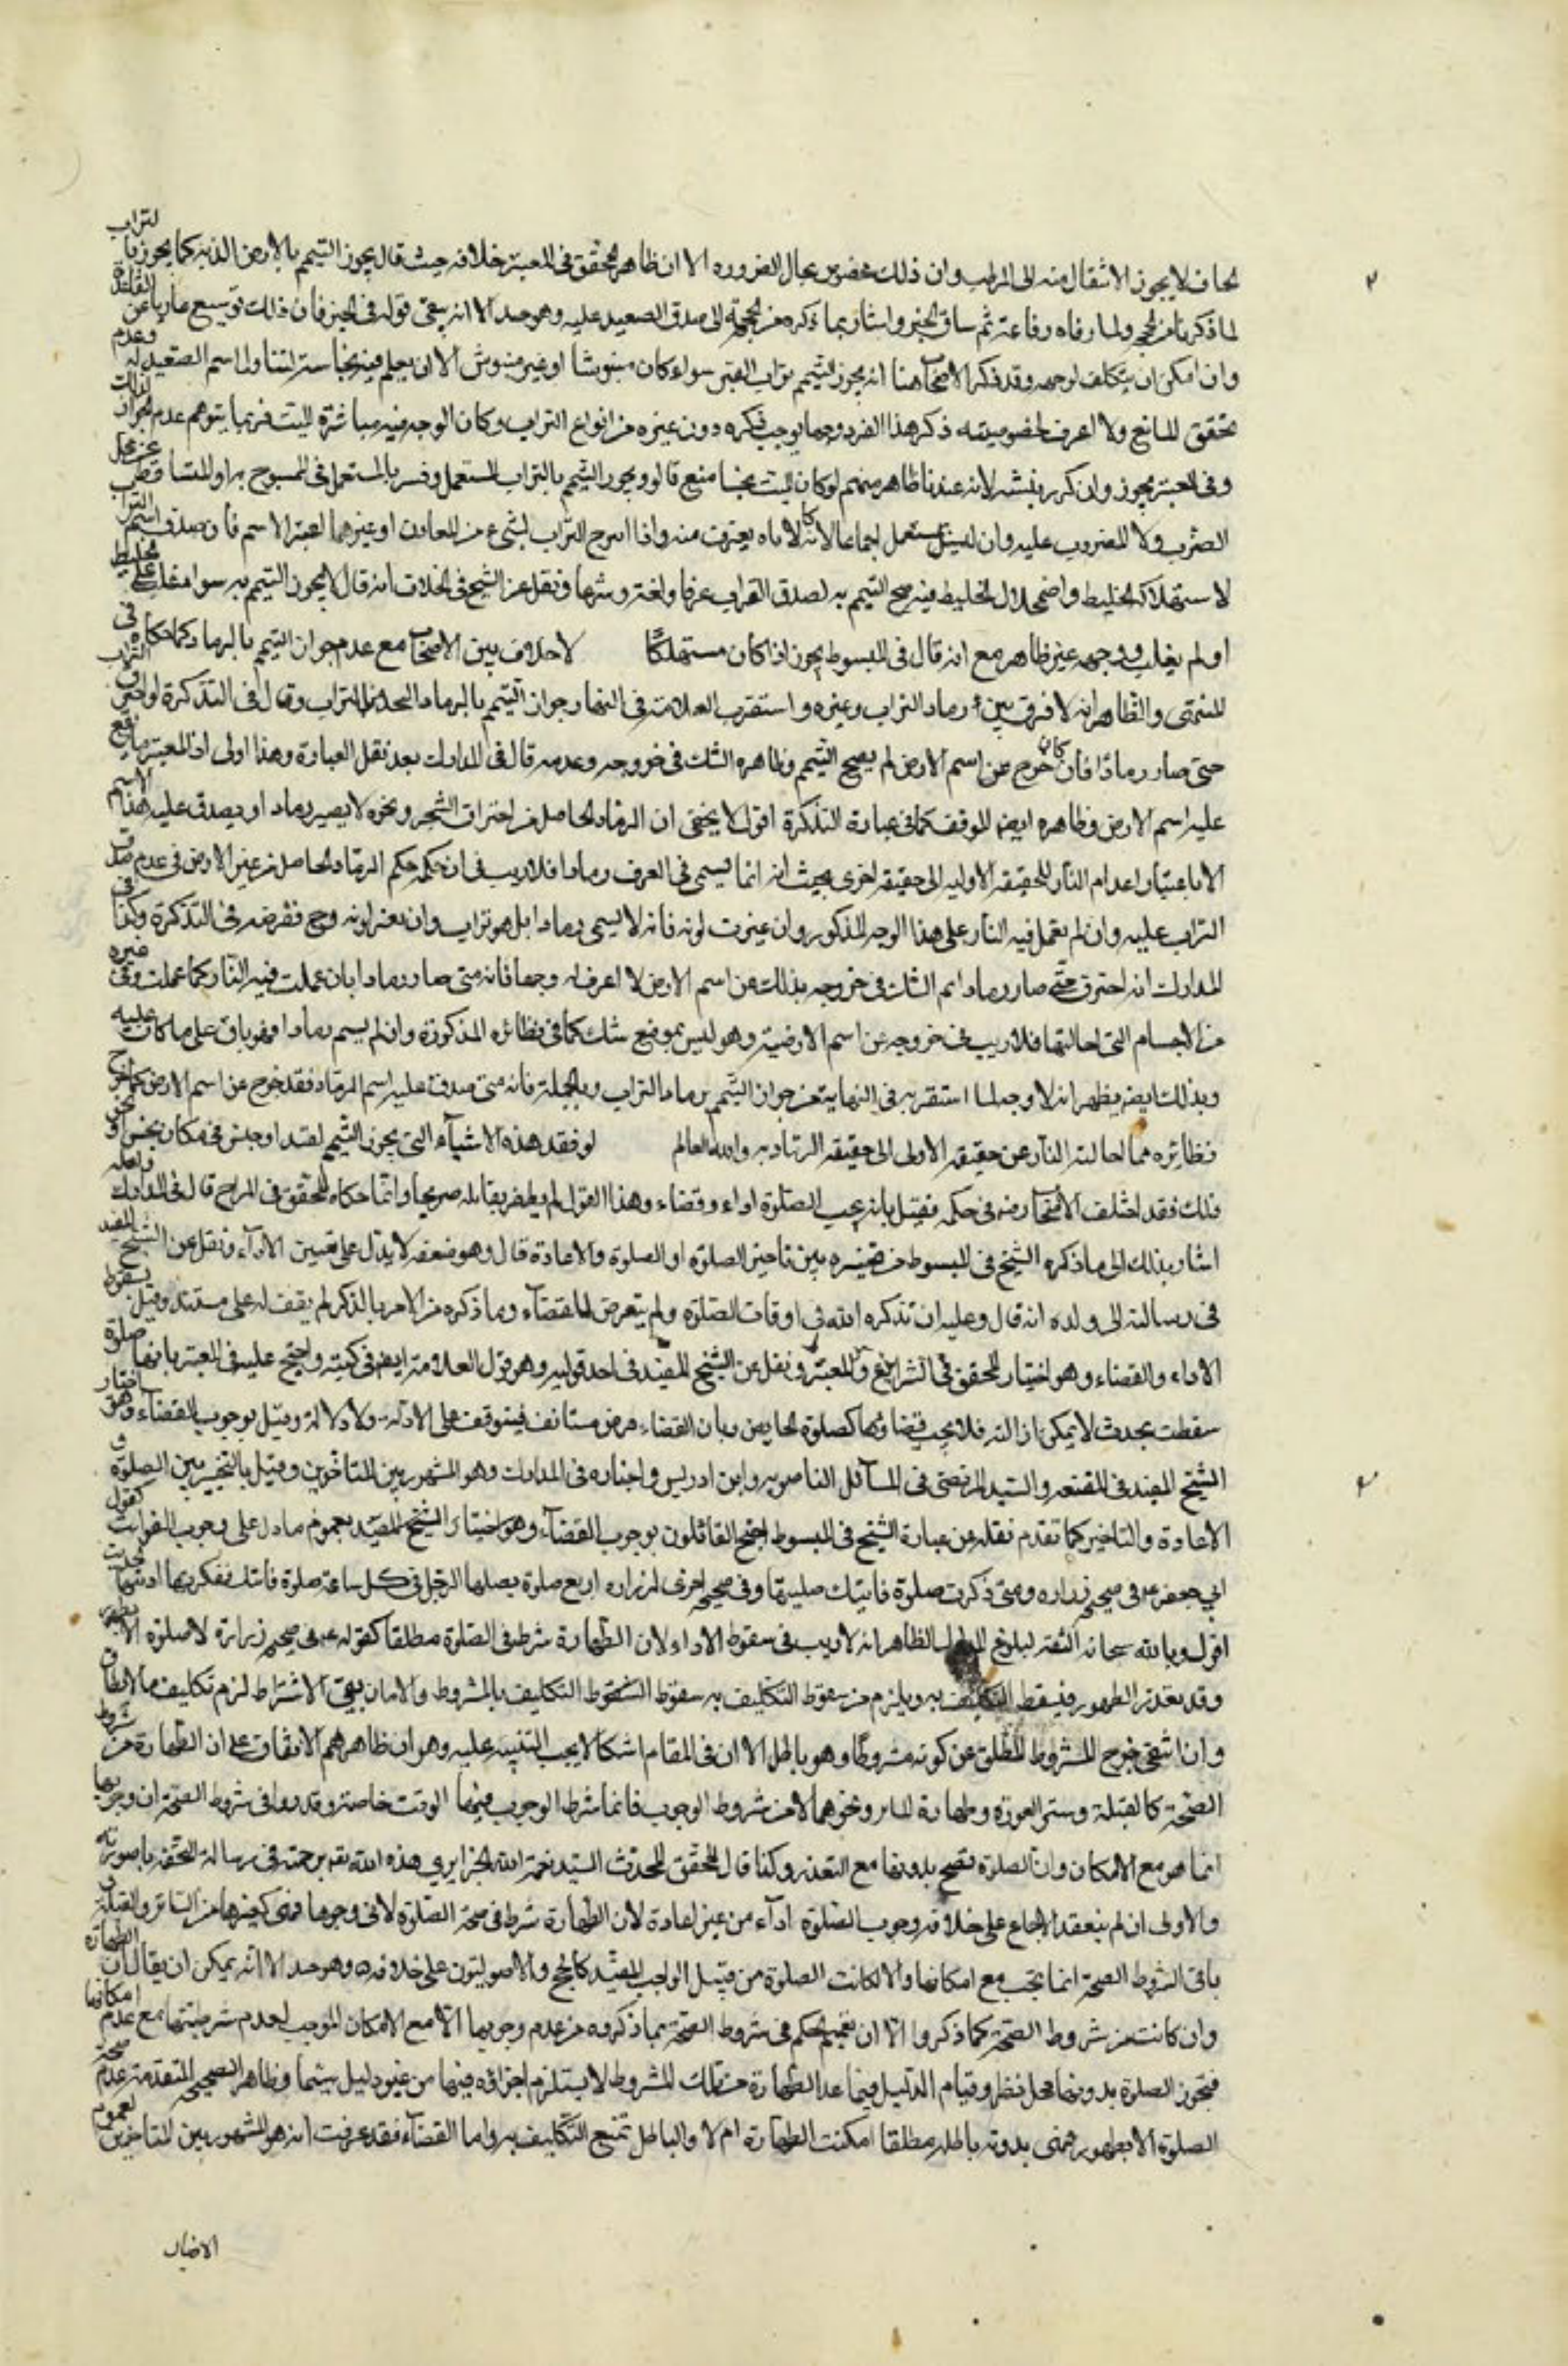 الجاف لا يجوز الانتقال منه الى الرطب وان ذلك مخصوص بحال الضروره الا ان ظاهر المحقق فى المعتبر خلافه حيث قال يجوز التيمم بالارض النديه كما يجوز بالتراب
لما ذكرناه الحجر ولما رفاه رفاعة ثم ساق الخبر واشار بما ذكره من الحجة الى صدق الصعيد عليه وهو جيد الا انه يبقى قوله فى الخبر فان ذلك توسيع عاريا عن الفائدة
وان امكن ان يتكلف لوجهه وقد ذكر الاصحاب هنا انه يجوز التيمم بتراب القبر سواء كان منبوشا او غير منبوش الا ان يعلم فيه نجاسة لتناول اسم الصعيد له وعدم
تحقق المانع ولا اعرف لخصوصيته ذكر هذا الفرد وجها يوجب ذكره دون غيره من انواع التراب وكان الوجه فيه مباشرة الميت فربما يتوهم عدم الجواز لذلك
وفى المعتبر يجوز وان تكرر نبشه لانه عندنا طاهر منهم لو كان الميت نجسا منع قالوا ويجوز التيمم بالتراب المستعمل وفسر بالمستعمل فى الممسوح به او المتساقط عن محل
الضرب ولا المضروب عليه وان ليس بمستعمل اجماعا لانه كالاناء يغترف منه واذا امتزج التراب بشىء من المعادن او غيرهما اعتبر الاسم فان صدق اسم التراب
لاستهلاك الخليط واضمحلال الخليط فيه صح التيمم به لصدق التراب عرفا ولغة وشرعا ونقل عن الشيخ فى الخلاف انه قال لا يجوز التيمم به سواء غلب على المخليط
او لم يغلب ووجهه غير ظاهر مع انه قال فى المبسوط يجوز اذا كان مستهلكا لا خلاف بين الاصحاب مع عدم جواز التيمم بالرماد كما حكاه فى
المنتهى والظاهر انه لا فرق بين رماد التراب وغيره واستقرب العلامة فى النهايه جواز التيمم بالرماد المتخذ من التراب وقال فى التذكرة لو احترق التراب
حتى صار رمادا فان كان خرج عن اسم الارض لم يصح التيمم وظاهره الشك فى خروجه وعدمه قال فى المدارك بعد نقل العبارة وهذا اولى اذ المعتبر ما يقع
عليه اسم الارض وظاهره ايضا التوقف كما فى عبارة التذكرة اقول لا يخفى ان الرماد الحاصل من احتراق الشجر ونحوه لا يصير رماد او يصدق عليه هذا الاسم
الا باعتبار اعدام النار للحقيقه الاوليه الى حقيقه اخرى بحيث انه انما يسمى فى العرف رمادا فلا ريب فى ان حكمه حكم الرماد الحاصل من غير الارض فى عدم صدق
التراب عليه وان لم تعمل فيه النار على هذا الوجه المذكور وان غيرت لونه فانه لا يسمى رمادا بل هو تراب وان تغير لونه وح ففرضه فى التذكرة وكذا فى
المدارك انه احترق حتى صار رمادا ثم الشك فى خروجه بذلك عن اسم الارض لا اعرف له وجها فانه متى صار رمادا بان عملت فيه النار كما عملت فى غيره
من الاجسام التى احالتها فلا ريب فى خروجه عن اسم الارضية وهو ليس بموضع شك كما فى نظائره المذكورة وان لم يسم رمادا فهو باق على ما كان عليه
وبذلك ايضا يظهر انه لا وجه لما استقربه فى النهاية من جواز التيمم برماد التراب وبالجملة فانه متى صدق عليه اسم الرماد فقد خرج عن اسم الارض كما خرج
نظائره مما احالته النار عن حقيقته الاولى الى حقيقه الرماديه والله العالم لو فقد هذه الاشياء التى يجوز التيمم لقيد او حبس فى مكان نجس او نحو
ذلك فقد اختلف الاصحاب رضه فى حكمه فقيل بانه يجب الصلوة اداء وقضاء وهذا القول لم يظفر بقائله صريحا وانما حكاه المحقق فى الشرايع قال فى المدارك ولعله
اشار بذلك الى ما ذكره الشيخ فى المبسوط من تخييره بين تاخير الصلوة او الصلوة والاعادة قال وهو ضعفه لا يدل على تعيين الاداء ونقل عن الشيخ المفيد
فى رسالته الى ولده انه قال وعليه ان تذكره الله فى اوقات الصلوة ولم يتعرض للقضاء وما ذكره من الامر بالذكر لم يقف له على مستند وقيل بسقوط
الاداء والقضاء وهو اختيار المحقق فى الشرايع والمعتبر ونقل عن الشيخ المفيد فى احد قوليه وهو قول العلامة ايضا فى كتبه واحتج عليه فى المعتبر بانها صلوة
سقطت بحدث لا يمكن ازالته فلا يجب قضاؤها كصلوة الحايض وبان القضاء فرض مستانف فيتوقف على الادلة ولا دلالة وقيل بوجوب القضاء وهو اختيار
الشيخ المفيد فى المقنعه والسيد المرتضى فى المسائل الناصريه وابن ادريس واختاره فى المدارك وهو المشهور بين المتاخرين وقيل بالتخيير بين الصلوة و
الاعادة والتاخير كما تقدم نقله عن عبارة الشيخ فى المبسوط احتج القائلون بوجوب القضاء وهو اختيار الشيخ المفيد بعموم ما دل على وجوب الفوائت كقول
ابي جعفر ع فى صحيحة زراره ومتى ذكرت صلوة فاتتك صليتها وفى صحيحه اخرى لزراره اربع صلوة يصليها الرجل فى كل ساعة صلوة فاتتك فمتى ذكرتها اديتها
اقول وبالله سبحانه الثقه لبلوغ الظاهر انه لا ريب فى سقوط الاداء لان الطهارة شرط فى الصلوة مطلقا كقوله ع فى صحيحه زرارة لا صلوة الا بطهور
وقد تعذر الطهور فيسقط التكليف به ويلزم من سقوط التكليف به سقوط التكليف بالمشروط والا فان بقى الاشتراط لزم تكليف ما لا يطاق
وان انتفى خرج المشروط المطلق عن كونه مشروطا وهو باطل الا ان فى المقام اشكالا يجب التنبيه عليه وهو ان ظاهرهم الاتفاق على ان الطهارة من شروط
الصحة كالقبلة وستر العورة وطهارة الساتر ونحوهما لا من شروط الوجوب فانما شرط الوجوب فيها الوقت خاصة وقد ذكروا فى شروط الصحة ان وجوبها
انما هو مع الامكان وان الصلوة تصح بدونها مع التعذر وكذا قال المحقق المحدث السيد نعمة الله الجزايري فى رسالة التحفة ما صورته
والاولى ان لم ينعقد الاجماع على خلافه وجوب الصلوة اداء من غير اعادة لان الطهارة شرط فى صحة الصلوة لا فى وجوبها فهى كغيرها من الساتر والقبلة و
باقى الشروط الصحة انما تجب مع امكانها والا لكانت الصلوة من قبيل الواجب المقيد كالحج والاصوليون على خلافه وهو جيد الا انه يمكن ان يقال ان الطهارة
وان كانت من شروط الصحة كما ذكروا الا ان تعميم الحكم فى شروط الصحة بما ذكروه من عدم وجوبها الا مع الامكان الموجب لعدم شرطيتها مع عدم امكانها
فتجوز الصلوة بدونها محل نظر وقيام الدليل فيما عدا الطهارة من تلك الشروط لا يستلزم اجزاءه فيها من غير دليل سيما وظاهر الصحيحه المتقدمة عدم صحة
الصلوة الا بطهور فهى بدونه باطله مطلقا امكنت الطهارة ام لا والباطل تمنع التكليف به واما القضاء فقد عرفت انه هو المشهور بين المتاخرين لعموم
الاخبار